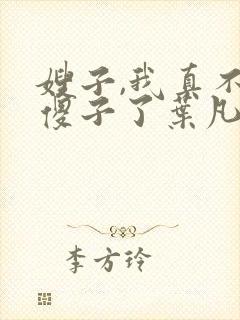 嫂子,我真不
傻子了葉凡
李方玲